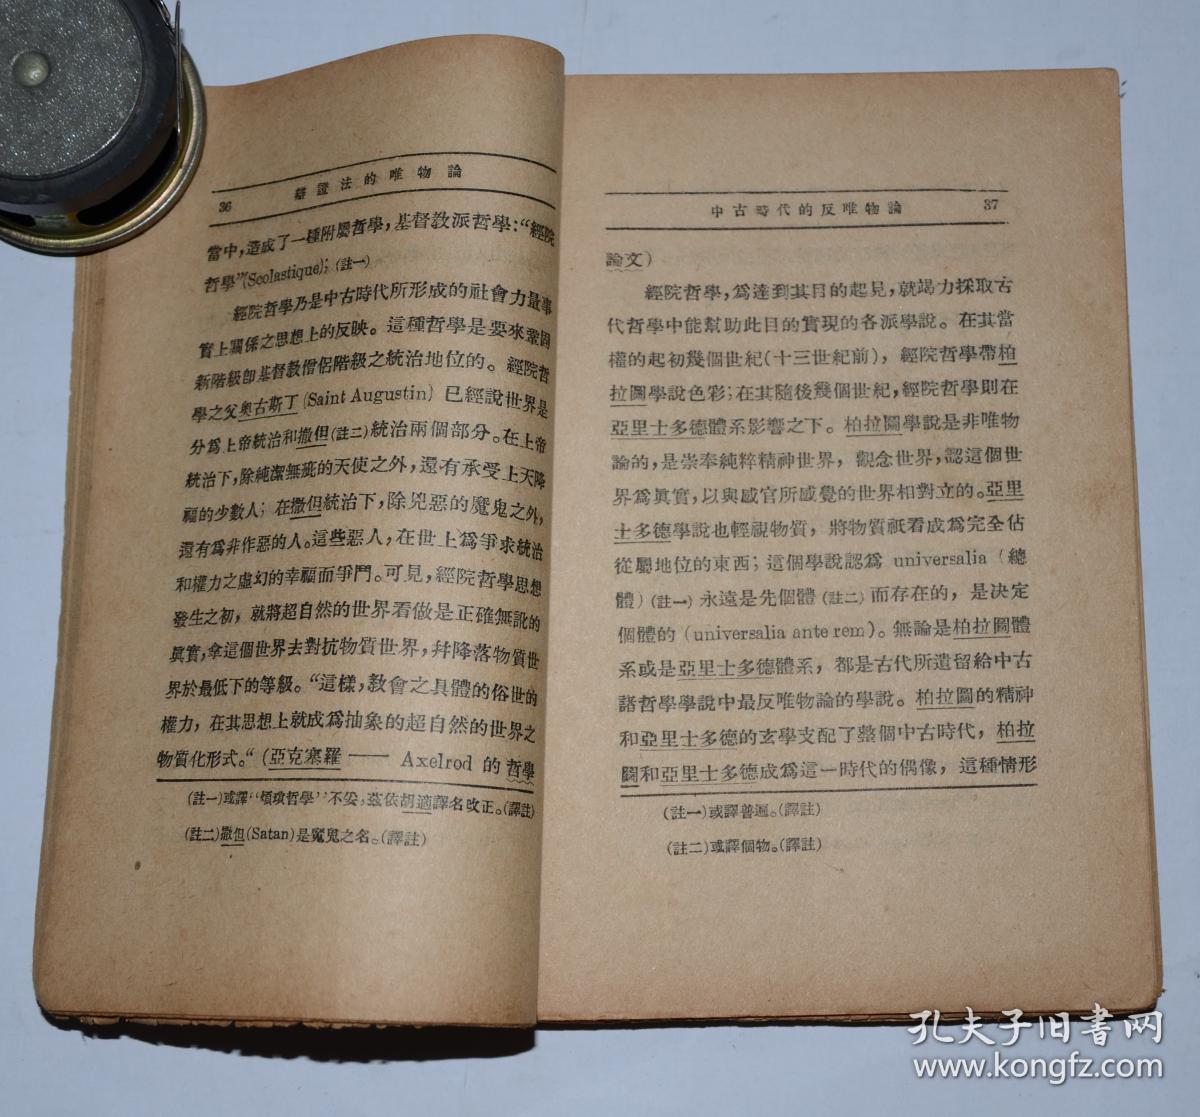 36 辯證法的唯物論
當中，造成了一種附屬哲學，基督教派哲學：“經院
哲學”(Scolastique)；(註一)
經院哲學乃是中古時代所形成的社會力量事
實上關係之思想上的反映。這種哲學是要來鞏固
新階級卽基督教僧侶階級之統治地位的。經院哲
學之父奧古斯丁(Saint Augustin)已經說世界是
分爲上帝統治和撒但(註二)統治兩個部分。在上帝
統治下，除純潔無疵的天使之外，還有承受上天降
福的少數人；在撒但統治下，除兇惡的魔鬼之外，
還有爲非作惡的人。這些惡人，在世上爲爭求統治
和權力之虛幻的幸福而爭鬥。可見，經院哲學思想
發生之初，就將超自然的世界看做是正確無訛的
眞實，拿這個世界去對抗物質世界，幷降落物質世
界於最低下的等級。“這樣，教會之具體的俗世的
權力，在其思想上就成爲抽象的超自然的世界之
物質化形式。“（亞克塞羅—— Axelrod 的哲學
(註一)或譯“煩瑣哲學”不妥，茲依胡適譯名改正。(譯註)
(註二)撒但(Satan)是魔鬼之名。(譯註)
中古時代的反唯物論 37
論文）
經院哲學，爲達到其目的起見，就竭力採取古
代哲學中能幫助此目的實現的各派學說。在其當
權的起初幾個世紀(十三世紀前)，經院哲學帶柏
拉圖學說色彩；在其隨後幾個世紀，經院哲學則在
亞里士多德體系影響之下。柏拉圖學說是非唯物
論的，是崇奉純粹精神世界，觀念世界，認這個世
界爲眞實，以與感官所感覺的世界相對立的。亞里
士多德學說也輕視物質，將物質祇看成爲完全佔
從屬地位的東西；這個學說認爲 universalia（總
體）(註一)永遠是先個體(註二)而存在的，是決定
個體的（universalia ante rem)。無論是柏拉圖體
系或是亞里士多德體系，都是古代所遺留給中古
諸哲學學說中最反唯物論的學說。柏拉圖的精神
和亞里士多德的玄學支配了整個中古時代，柏拉
圖和亞里士多德成爲這一時代的偶像，這種情形
(註一)或譯普遍。(譯註)
(註二)或譯個物。(譯註)
孔夫子旧书网
www.kongfz.com